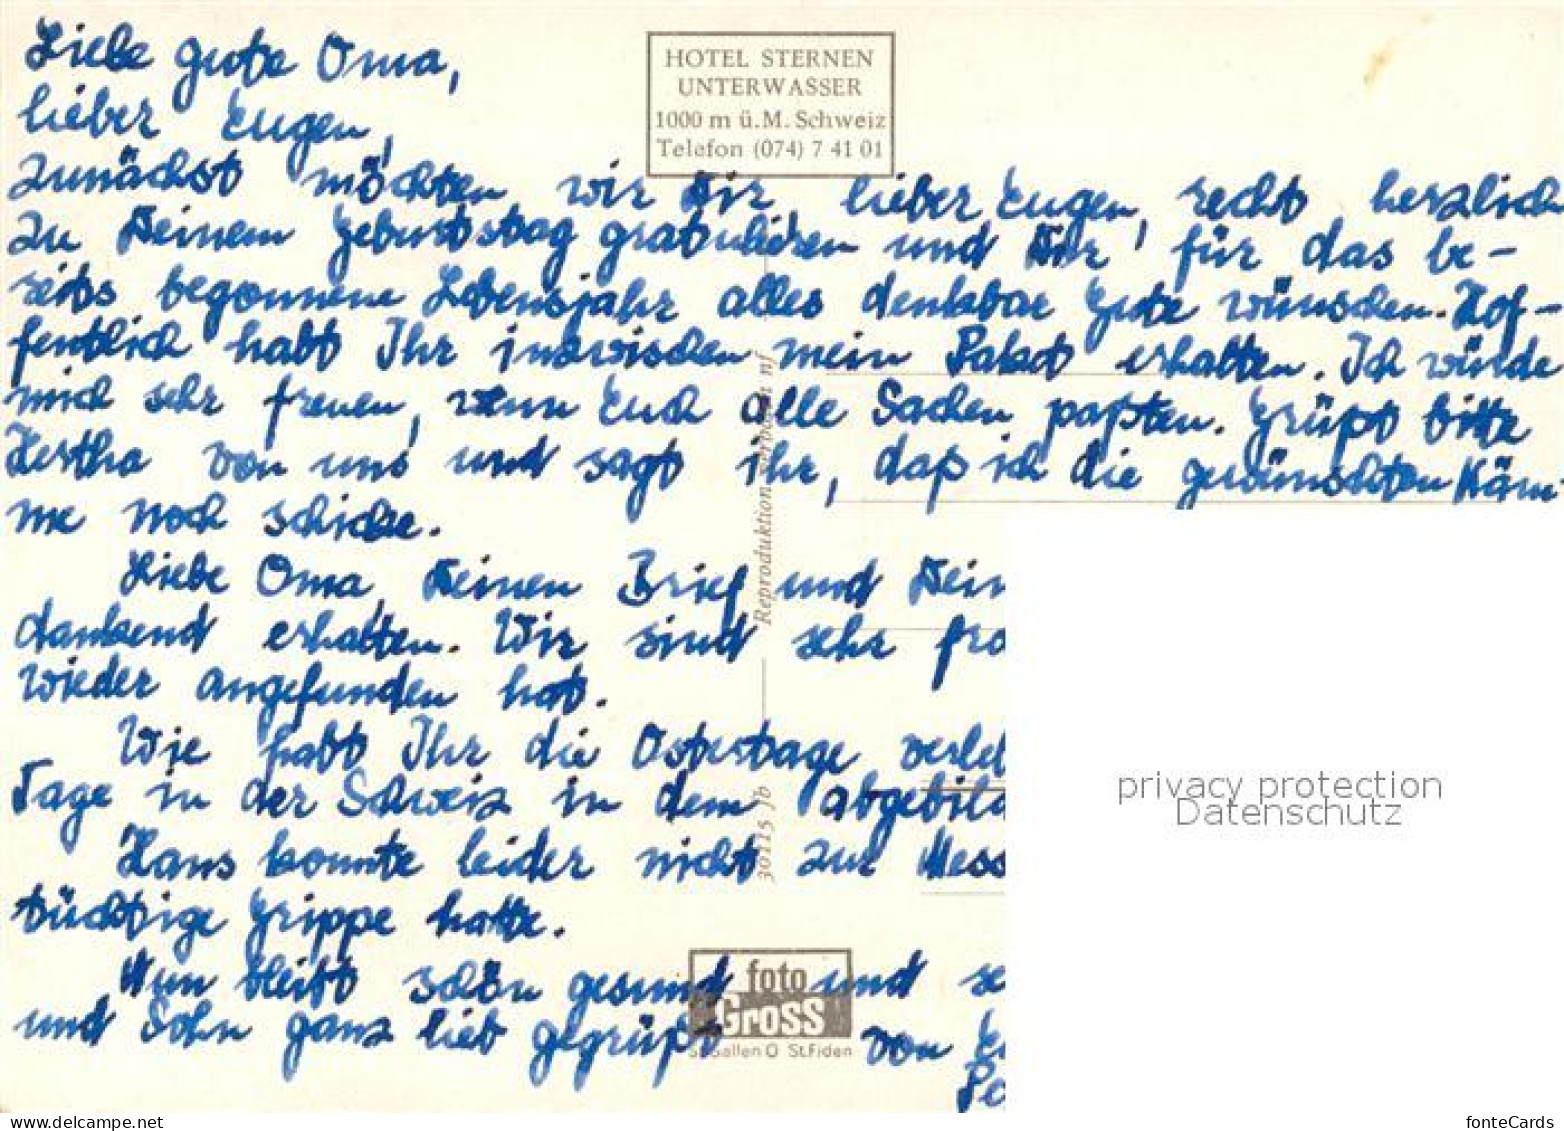 Liebe gute Oma,
lieber Eugen,
HOTEL STERNEN
UNTERWASSER
1000 m ü.M. Schweiz
Telefon (074) 7 41 01
zunächst möchten wir Dir, lieber Eugen, recht herzlich
zu Deinem Geburtstag gratulieren und Dir für das be-
reits begonnene Lebensjahr alles denkbar Gute wünschen. Hof-
fentlich habt Ihr inzwischen mein Paket erhalten. Ich würde
mich sehr freuen, wenn Euch alle Sachen paßten. Grüßt bitte
Hertha von uns und sagt ihr, daß ich die gewünschten Käm-
me noch schicke.
Liebe Oma, Deinen Brief und Dein
dankend erhalten. Wir sind sehr fro
wieder angefunden hat.
Wie habt Ihr die Ostertage verleb
Tage in der Schweiz in dem abgebild
Hans konnte leider nicht zur Mess
tüchtige Grippe hatte.
Nun bleibt schön gesund und se
und Sohn ganz lieb gegrüßt von E
Pa
Reproduktion verboten nf
30115 Jb
foto
Gross
St.Gallen O St.Fiden
privacy protection
Datenschutz
www.delcampe.net
fonteCards